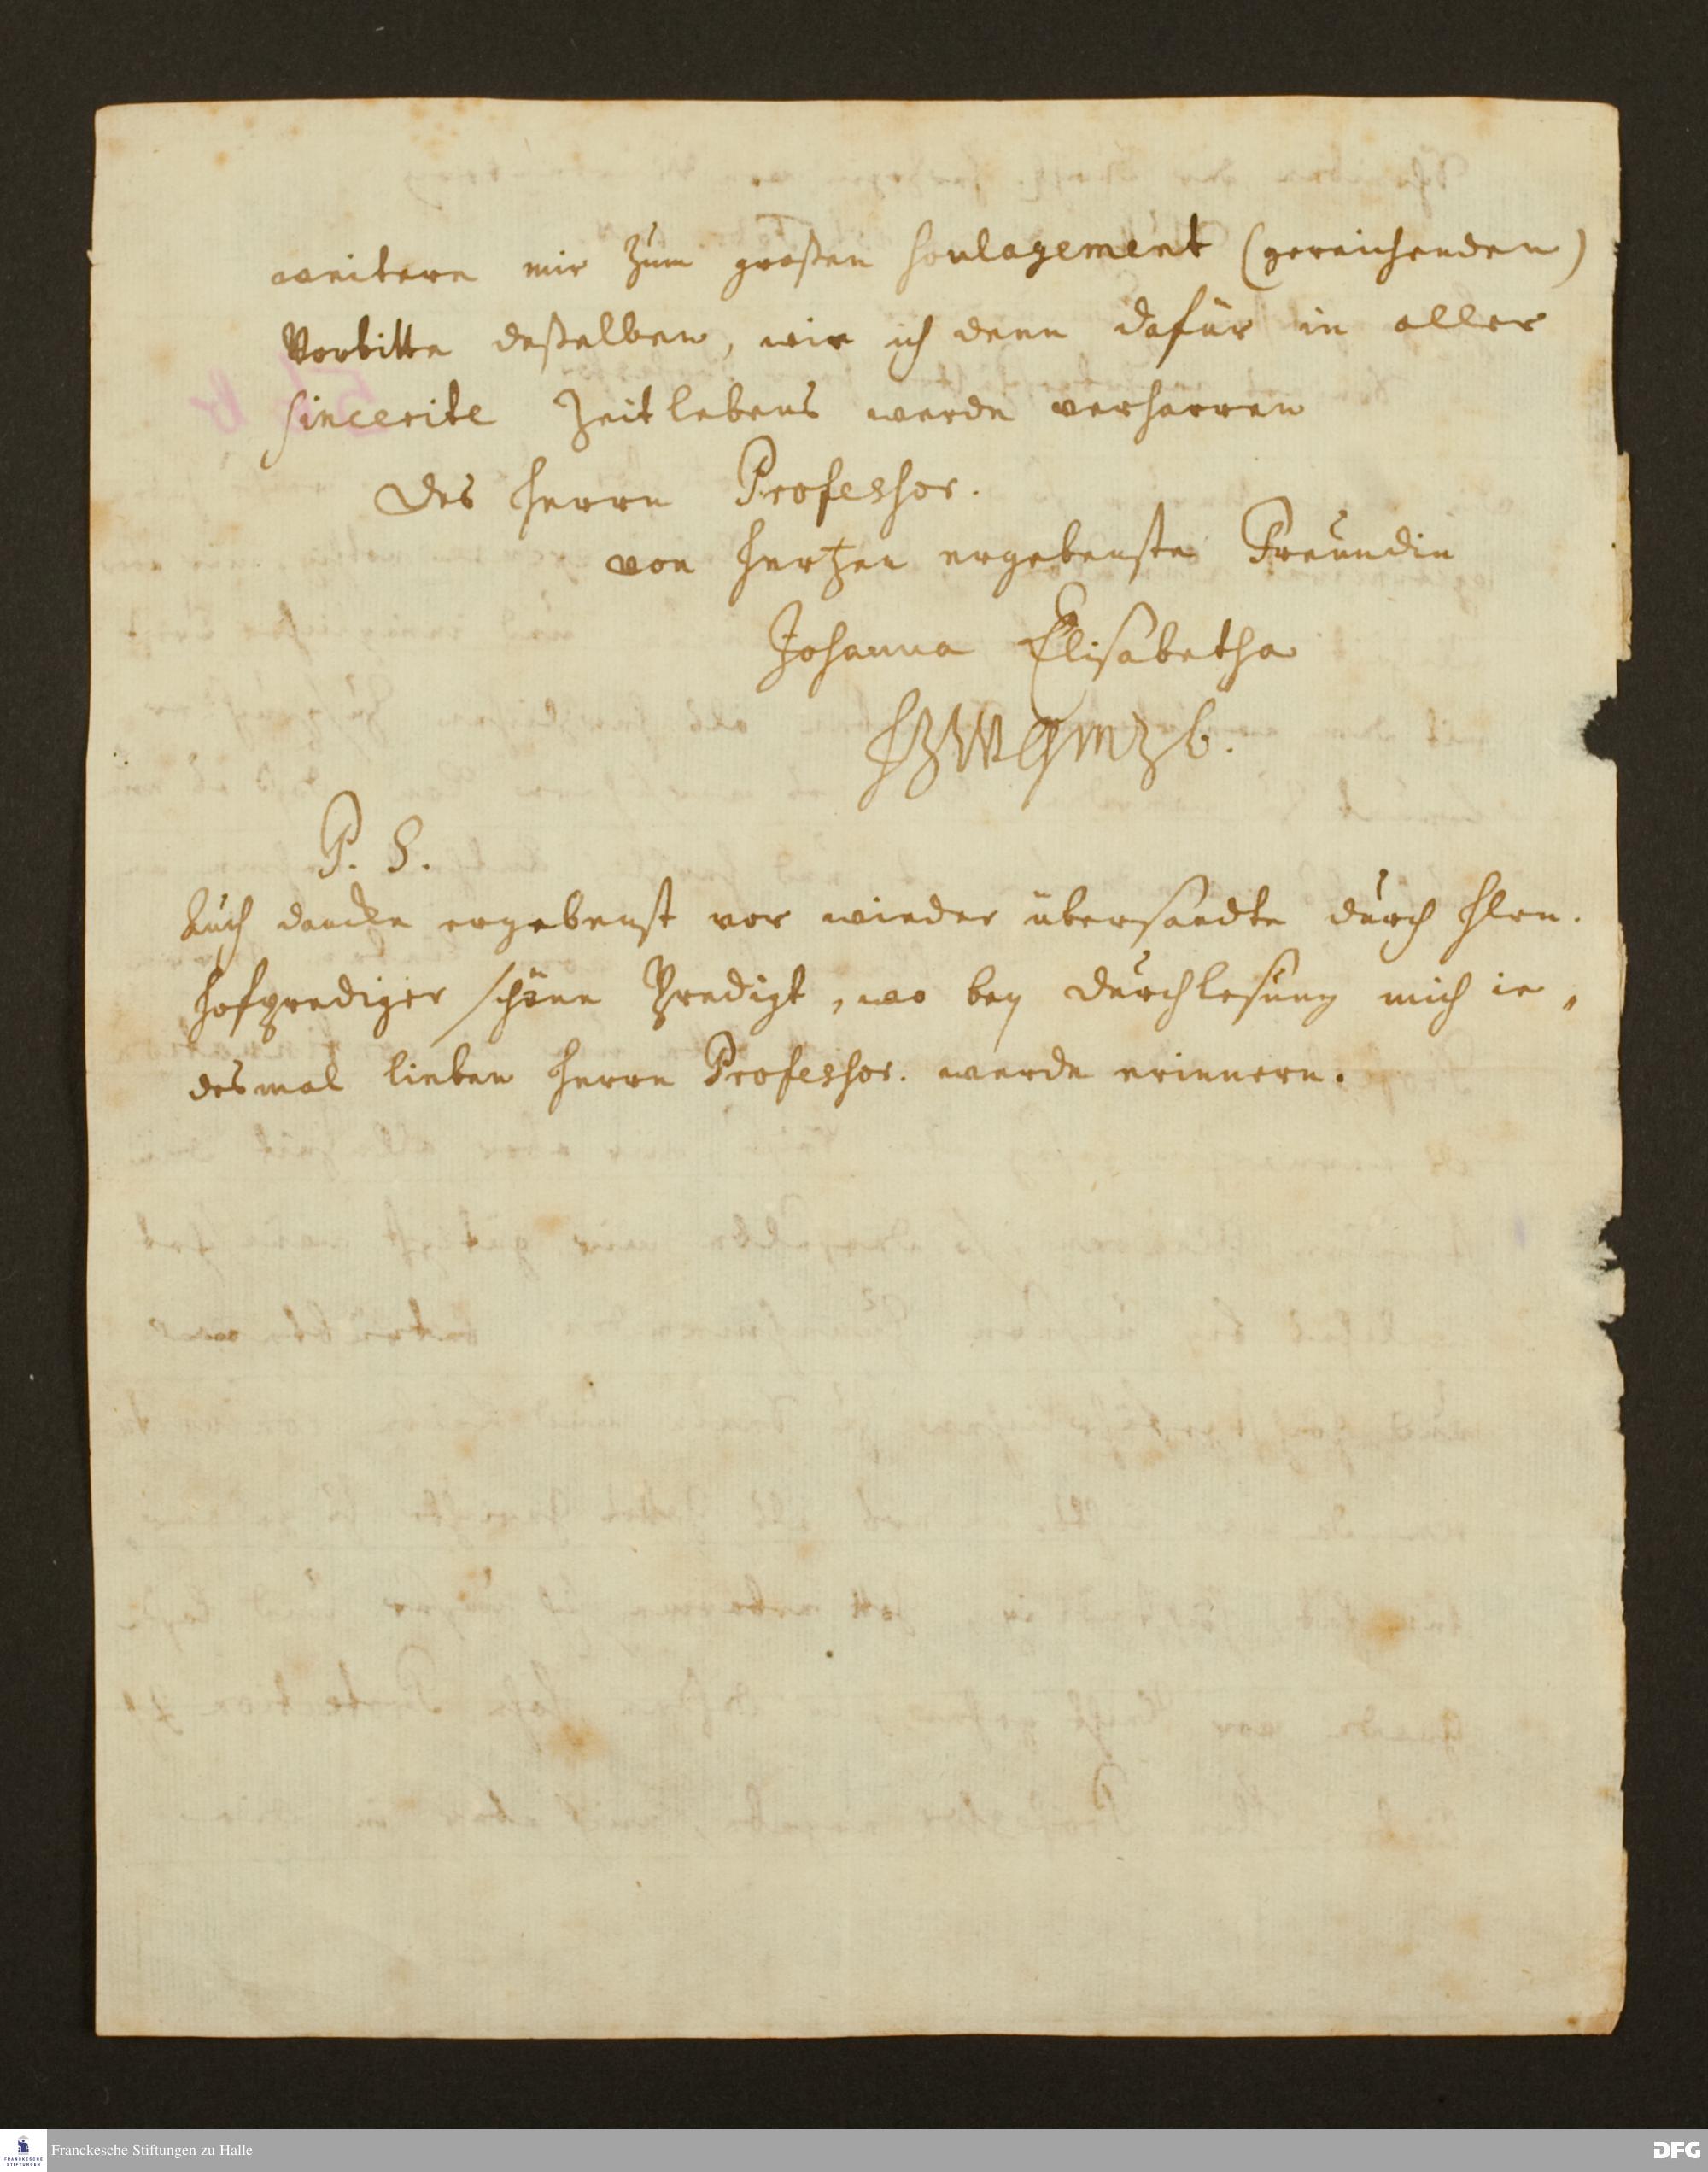 weitern mir zum großen soulagement (gereichenden)
Vorbitte deßelben, wie ich denn dafür in aller
sincerite Zeitlebens werde verharren
Des Herrn Professor.
von Hertzen ergebenste Freundin
Johanna Elisabetha
HZWGMZB.
P. S.
Auch dancke ergebenst vor wieder übersandte durch Hern.
Hofprediger schöne Predigt, wo bey Durchlesung mich ie„
desmal lieben Herrn Professor. werde erinnern.
Franckesche Stiftungen zu Halle
FRANCKESCHE
STIFTUNGEN
DFG